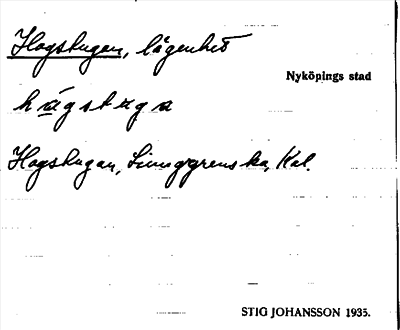 Hagstugan, lägenhet
Nyköpings stad
hágstuga
Hagstugan, Kal.
STIG JOHANSSON 1935.